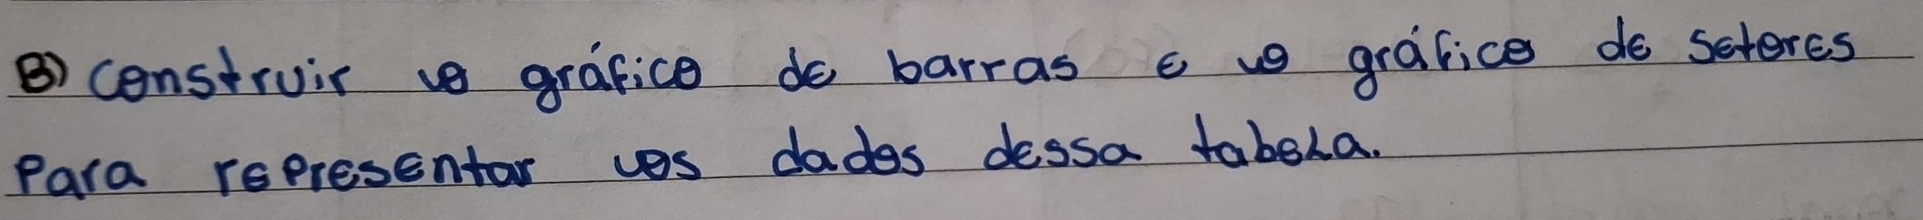 B) construir o gráfico de barras e o gráfico de setores
Para representar os dados dessa tabela.